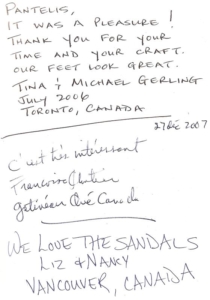 PANTELIS,
IT WAS A PLEASURE!
THANK YOU FOR YOUR
TIME AND YOUR CRAFT.
OUR FEET LOOK GREAT.
TINA & MICHAEL GERLING
JULY 2006
TORONTO, CANADA
27 Déc 2007
C'est très intéressant
Françoise
Gatineau Qué Canada
WE LOVE THE SANDALS
LIZ & NANCY
VANCOUVER, CANADA